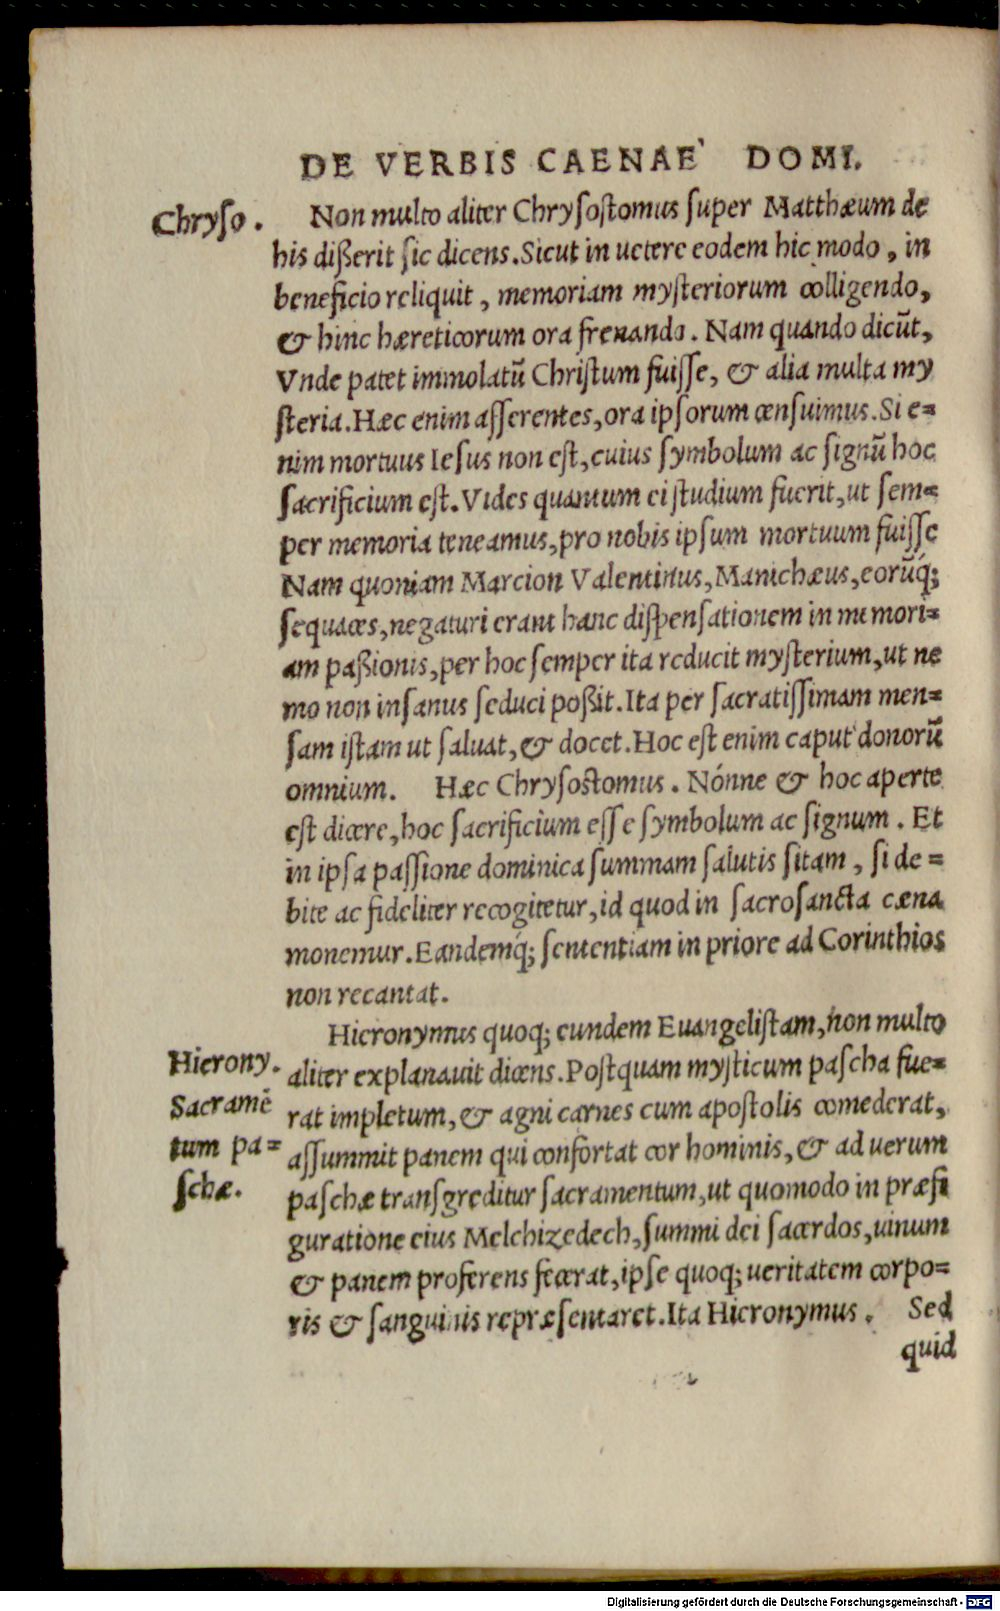 DE VERBIS CAENAE` DOMI.
Chryſo.
Non multo aliter Chryſoſtomus ſuper Matthæum de
his diſſerit ſic dicens. Sicut in uetere eodem hic modo, in
beneficio reliquit, memoriam myſteriorum colligendo,
& hinc hæreticorum ora frenando. Nam quando dicūt,
Vnde patet immolatū Chriſtum fuiſſe, & alia multa my
ſteria. Hæc enim aſſerentes, ora ipſorum cenſuimus. Si e=
nim mortuus Ieſus non eſt, cuius ſymbolum ac ſignū hoc
ſacrificium eſt. Vides quantum ei ſtudium fuerit, ut ſem=
per memoria teneamus, pro nobis ipſum mortuum fuiſſe
Nam quoniam Marcion Valentinus, Manichæus, eorūq́;
ſequaces, negaturi erant hanc diſpenſationem in memori=
am paßionis, per hoc ſemper ita reducit myſterium, ut ne
mo non inſanus ſeduci poßit. Ita per ſacratiſſimam men=
ſam iſtam ut ſaluat, & docet. Hoc eſt enim caput donorū
omnium. Hæc Chryſoſtomus. Nónne & hoc aperte
eſt dicere, hoc ſacrificium eſſe ſymbolum ac ſignum. Et
in ipſa paſſione dominica ſummam ſalutis ſitam, ſi de=
bite ac fideliter recogitetur, id quod in ſacroſancta cæna
monemur. Eandemq́; ſententiam in priore ad Corinthios
non recantat.
Hieronymus quoq; eundem Euangeliſtam, non multo
Hierony.
aliter explanauit dicens. Poſtquam myſticum paſcha fue=
Sacramē
rat impletum, & agni carnes cum apoſtolis comederat,
tum pa=
aſſummit panem qui confortat cor hominis, & ad uerum
ſchæ.
paſchæ tranſgreditur ſacramentum, ut quomodo in præfi
guratione eius Melchizedech, ſummi dei ſacerdos, uinum
& panem proferens fecerat, ipſe quoq; ueritatem corpo=
ris & ſanguinis repræſentaret. Ita Hieronymus. Sed
quid
Digitalisierung gefördert durch die Deutsche Forschungsgemeinschaft - DFG